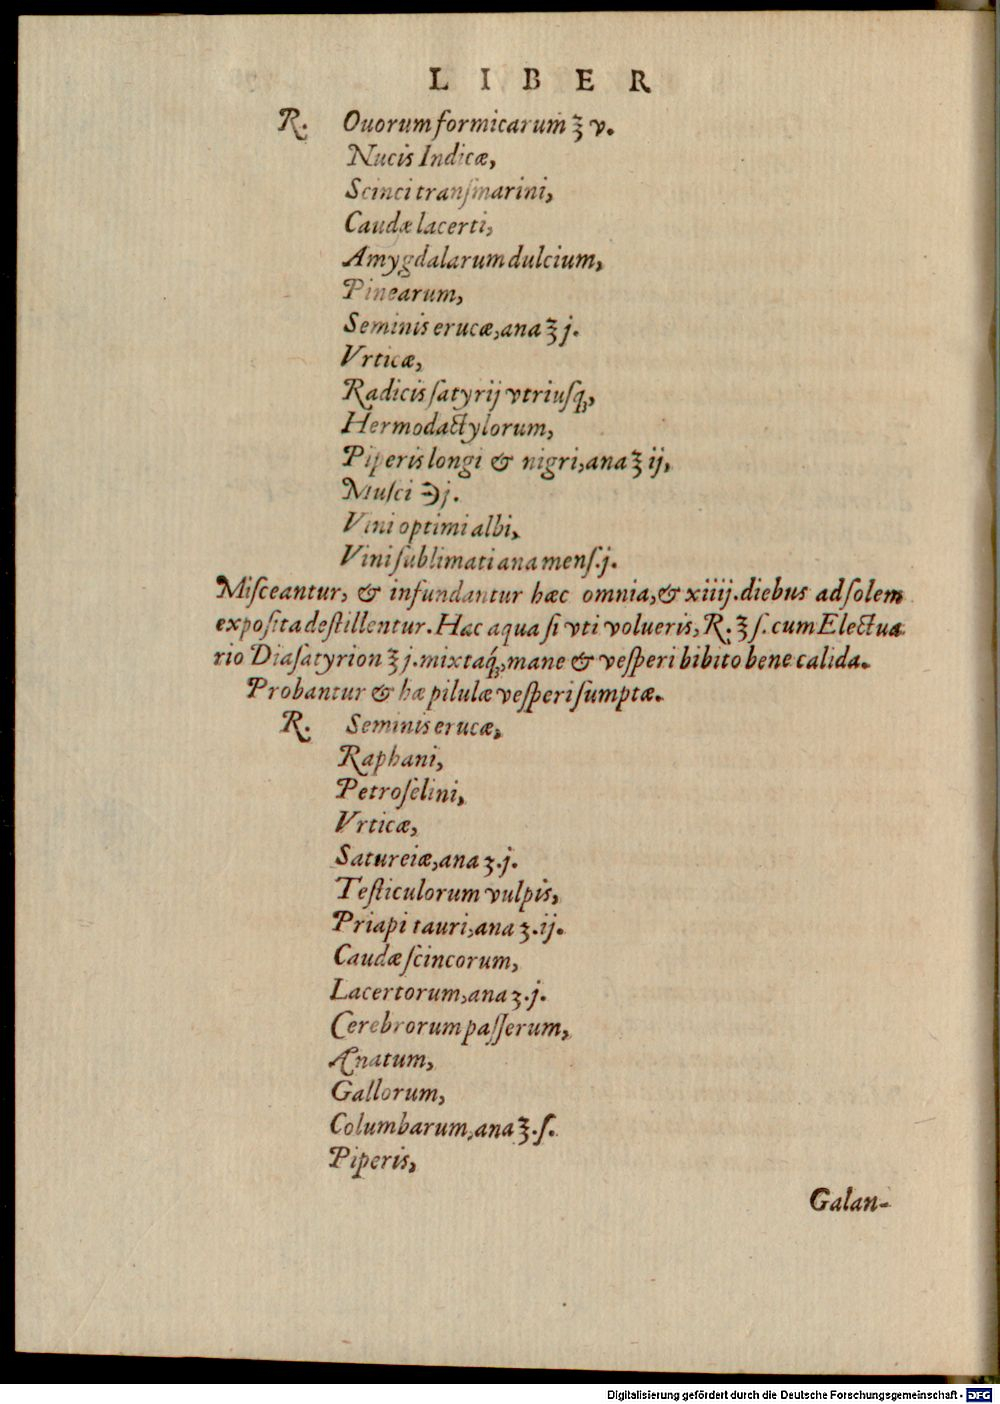 LIBER
℞. Ouorum formicarum ℥ v.
Nucis Indicæ,
Scinci tranſmarini,
Caudæ lacerti,
Amygdalarum dulcium,
Pinearum,
Seminis erucæ, ana ℥ j.
Vrticæ,
Radicis ſatyrij vtriuſq;,
Hermodactylorum,
Piperis longi & nigri, ana ℥ ij,
Muſci ℈ j.
Vini optimi albi,
Vini ſublimati ana menſ. j.
Miſceantur, & infundantur hæc omnia, & xiiij. diebus ad ſolem
expoſita deſtillentur. Hac aqua ſi vti volueris, ℞. ℥ ſ. cum Electua
rio Diaſatyrion ℥ j. mixtaq́;, mane & veſperi bibito bene calida.
Probantur & hæ pilulæ veſperi ſumptæ.
℞. Seminis erucæ,
Raphani,
Petroſelini,
Vrticæ,
Satureiæ, ana ʒ. j.
Teſticulorum vulpis,
Priapi tauri, ana ʒ. ij.
Caudæ ſcincorum,
Lacertorum, ana ʒ. j.
Cerebrorum paſſerum,
Ænatum,
Gallorum,
Columbarum, ana ℥. ſ.
Piperis,
Galan-
Digitalisierung gefördert durch die Deutsche Forschungsgemeinschaft - DFG